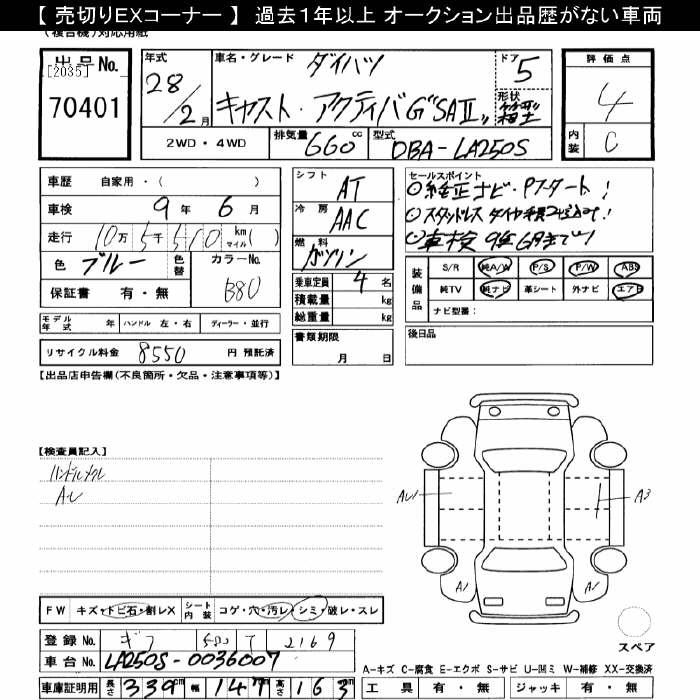 【 売切りEXコーナー 】 過去1年以上 オークション出品歴がない車両
(複合機)対応用紙
出品No. [2035] 70401
年式 28/2月
車名・グレード ダイハツ キャスト・アクティバG"SAⅡ"
ドア 5
形状 箱型
評価点 4
内装 C
2WD・4WD 排気量 660cc 型式 DBA-LA250S
車歴 自家用・( )
車検 9年6月
走行 10万5千510 km マイル( )
色 ブルー 色替 カラーNo. B80
保証書 有・無
モデル年式 年 ハンドル 左・右 ディーラー・並行
リサイクル料金 8550 円 預託済
シフト AT
冷房 AAC
燃料 ガソリン
乗車定員 4名
積載量 kg
総重量 kg
書類期限 月 日
セールスポイント
◎純正ナビ・Pスタート!
◎スタッドレスタイヤ
◎車検 9年6月まで!
装備品 S/R 純A/W P/S P/W ABS
純TV 純ナビ 革シート 外ナビ エアB
ナビ型番:
後日品
【出品店申告欄(不良箇所・欠品・注意事項等)】
【検査員記入】
ハンドルメクレ
AU
AU1
A3
A1
A1
スペア
FW キズ・トビ石・割レX シート内装 コゲ・穴・汚レ・シミ・破レ・スレ
登録No. ギフ 580 て 2169
車台No. LA250S-0036007
車庫証明用 長さ 339cm 幅 147cm 高さ 163cm
A-キズ C-腐食 E-エクボ S-サビ U-凹ミ W-補修 XX-交換済
工具 有・無 ジャッキ 有・無